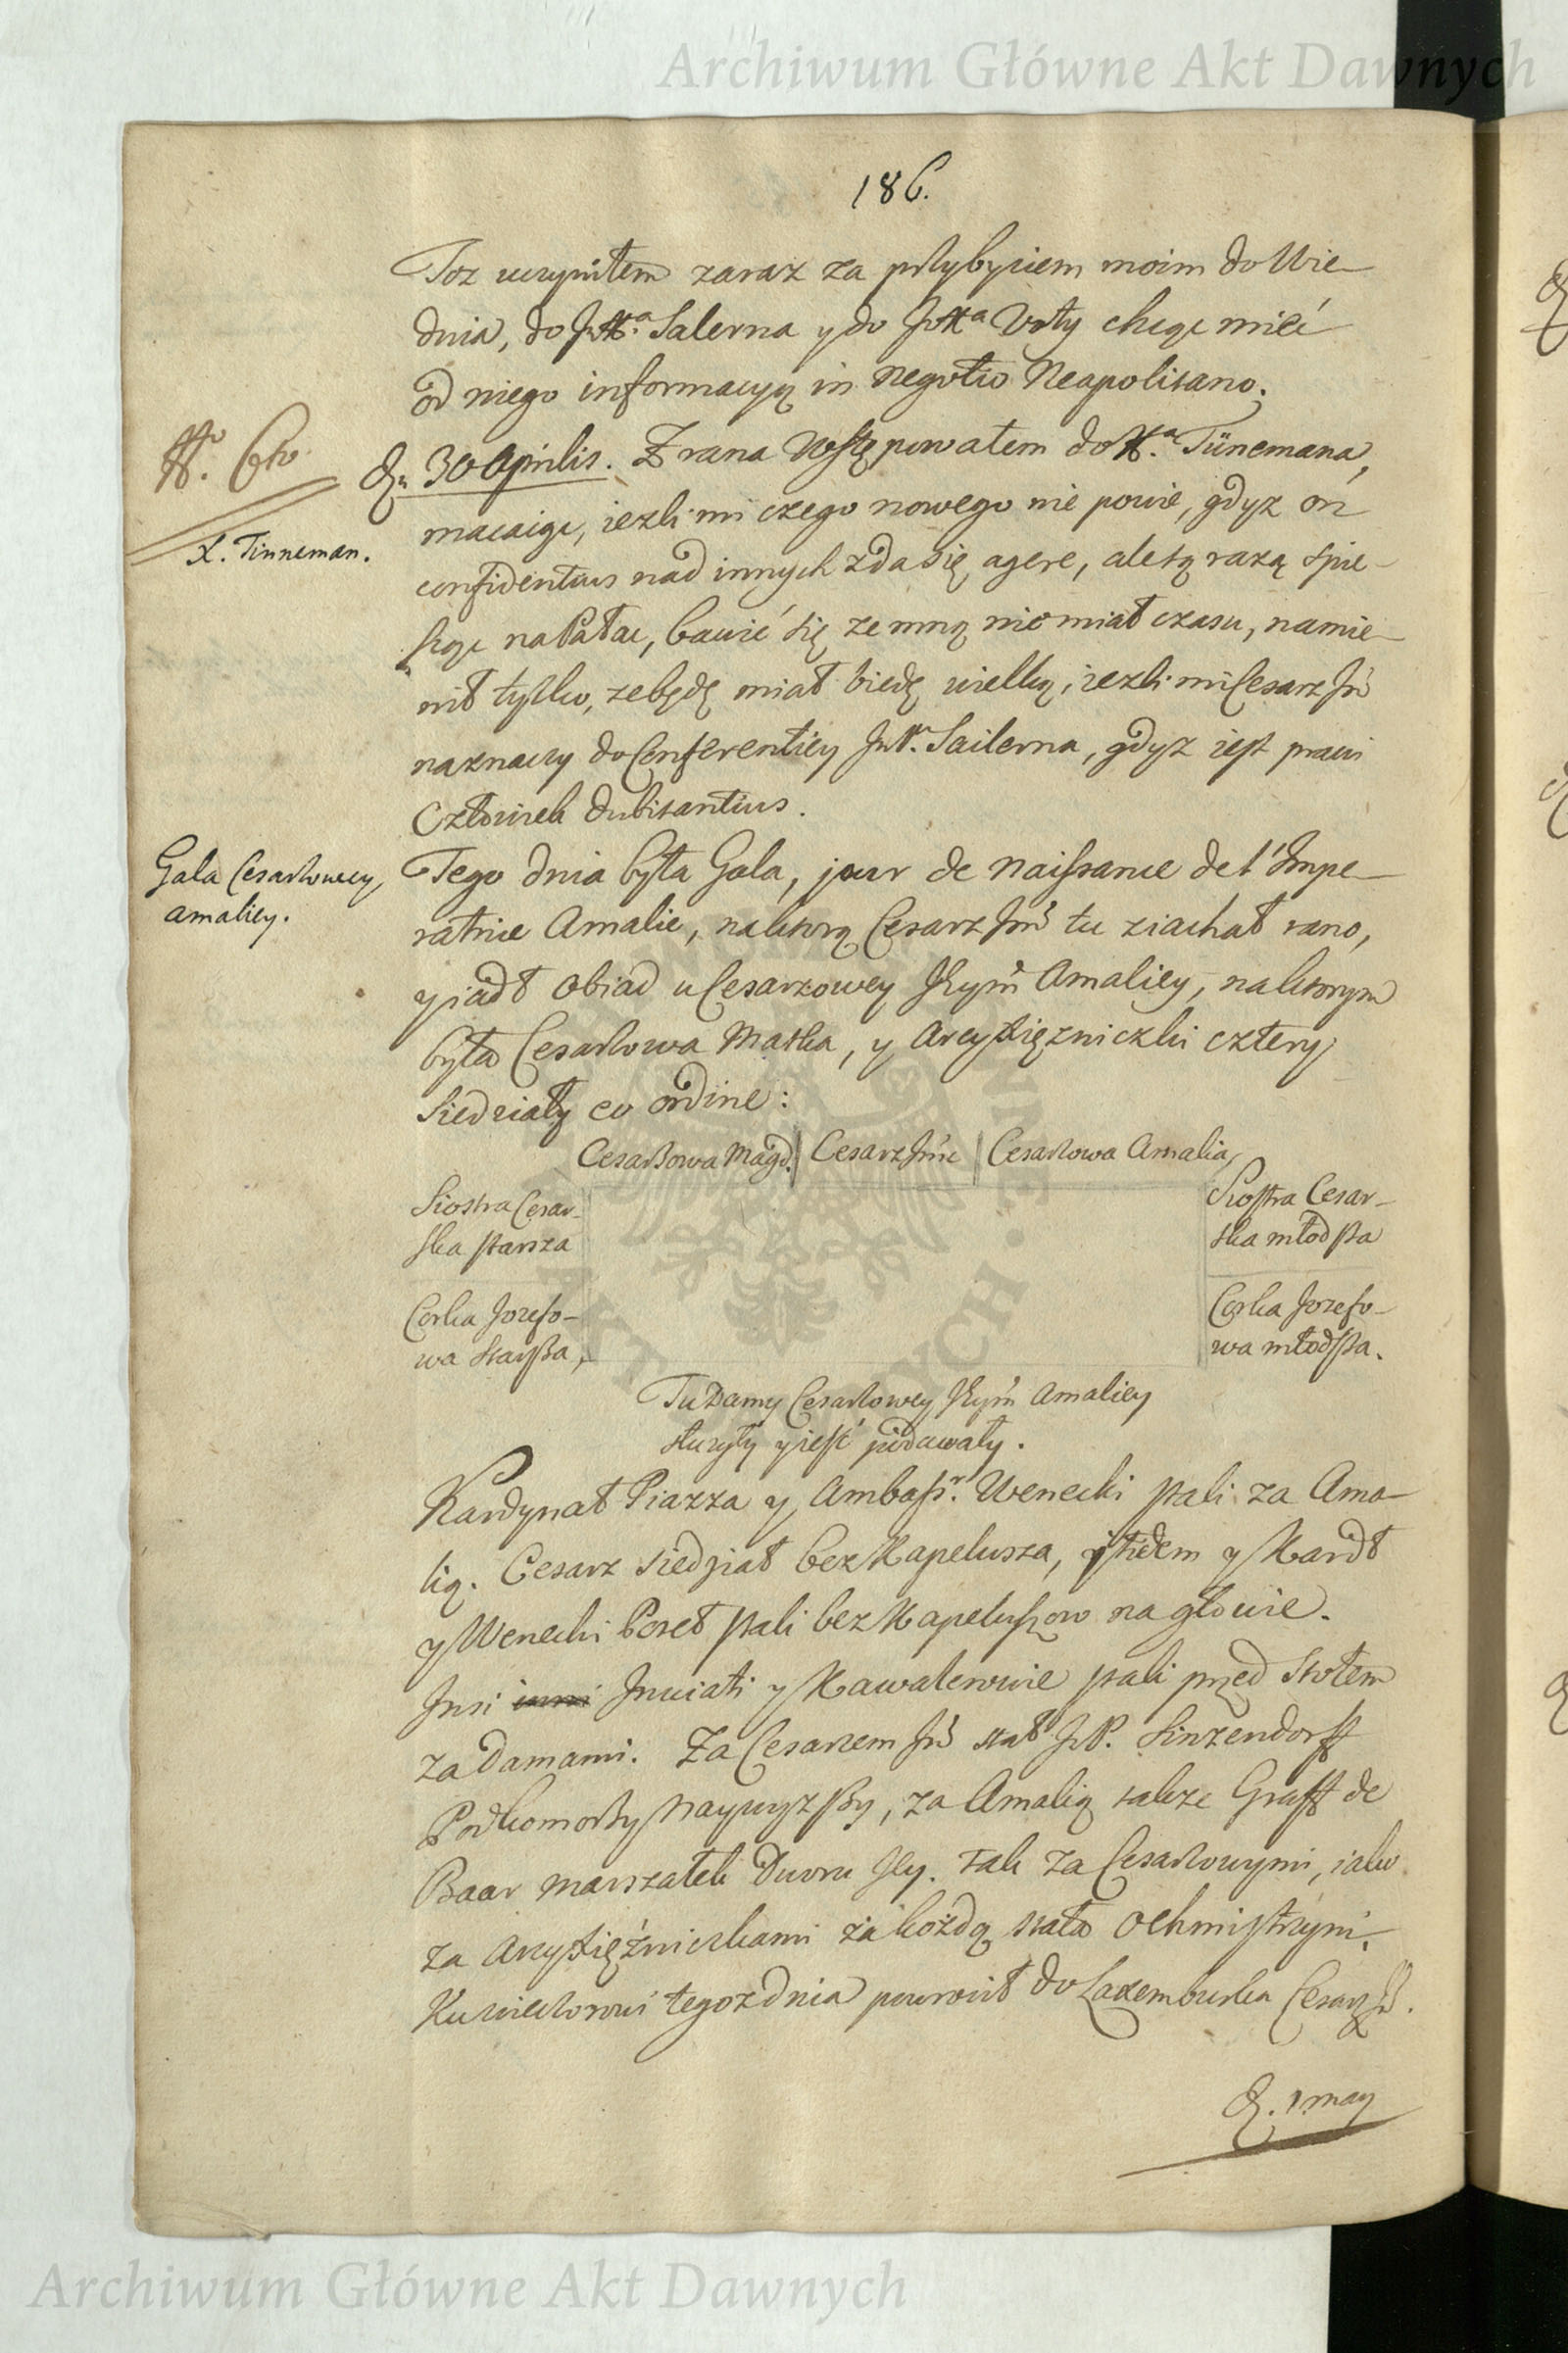 Archiwum Główne Akt Dawnych
186.
Toz uczyniłem zaraz za przybyciem moim do Wie-
dnia, do JX.ª Salerna y do JXª Voty chcąc mieć
od niego informacyą in negotio Neapolitano.
D. 30 Aprilis. Z rana wstępowałem do X.ª Tünemana,
X. Tinneman.
macaiąc, iezli mi czego nowego nie powie, gdyz on
confidentius nad innych zda się agere, ale tą razą spie-
sząc na Pałac, bawić się ze mną nie miał czasu, namie-
nił tylko, ze będę miał biedę wielką, iezli mi Cesarz Jm̃
naznaczy do Conferentiey JmP. Sailerna, gdyz iest prawi
Człowiek dubitantius.
Gala Cesarzowey
Amaliey.
Tego dnia była Gala, jour de naissance de l'Impe-
ratrice Amalie, na ktorą Cesarz Jm̃ tu ziachał rano,
y iadł obiad u Cesarzowey Jeym̃ Amaliey, na ktorym
była Cesarzowa Matka, y Arcyxięzniczki cztery,
Siedziały eo ordine:
Cesarzowa Magd. | Cesarz Jm̃c | Cesarzowa Amalia,
Siostra Cesar-
ska starsza
Siostra Cesar-
ska młodsza
Corka Jozefo-
wa starsza,
Corka Jozefo-
wa młodsza.
Tu Damy Cesarzowey Jeym̃ Amaliey
słuzyły y ieść podawały.
Kardynał Piazza y Ambass.r Wenecki stali za Ama-
lią. Cesarz siedział bez Kapelusza, itidem y Kardł
y Wenecki Poseł stali bez Kapeluszow na głowie.
Insi inni Inviati y Kawalerowie stali przed stołem
za Damami. Za Cesarzem Jm̃ stał JP. Sinzendorff
Podkomorzy Naywyzszy, za Amalią takze Graff de
Baar Marszałek Dworu Jey. Tak za Cesarzowymi, iako
za Arcyxięzniczkami za kozdą stała Ochmistrzyni.
Ku wieczorowi tegoz dnia powrocił do Laxemburka Cesarz Jm̃.
D. 1 May
Archiwum Główne Akt Dawnych